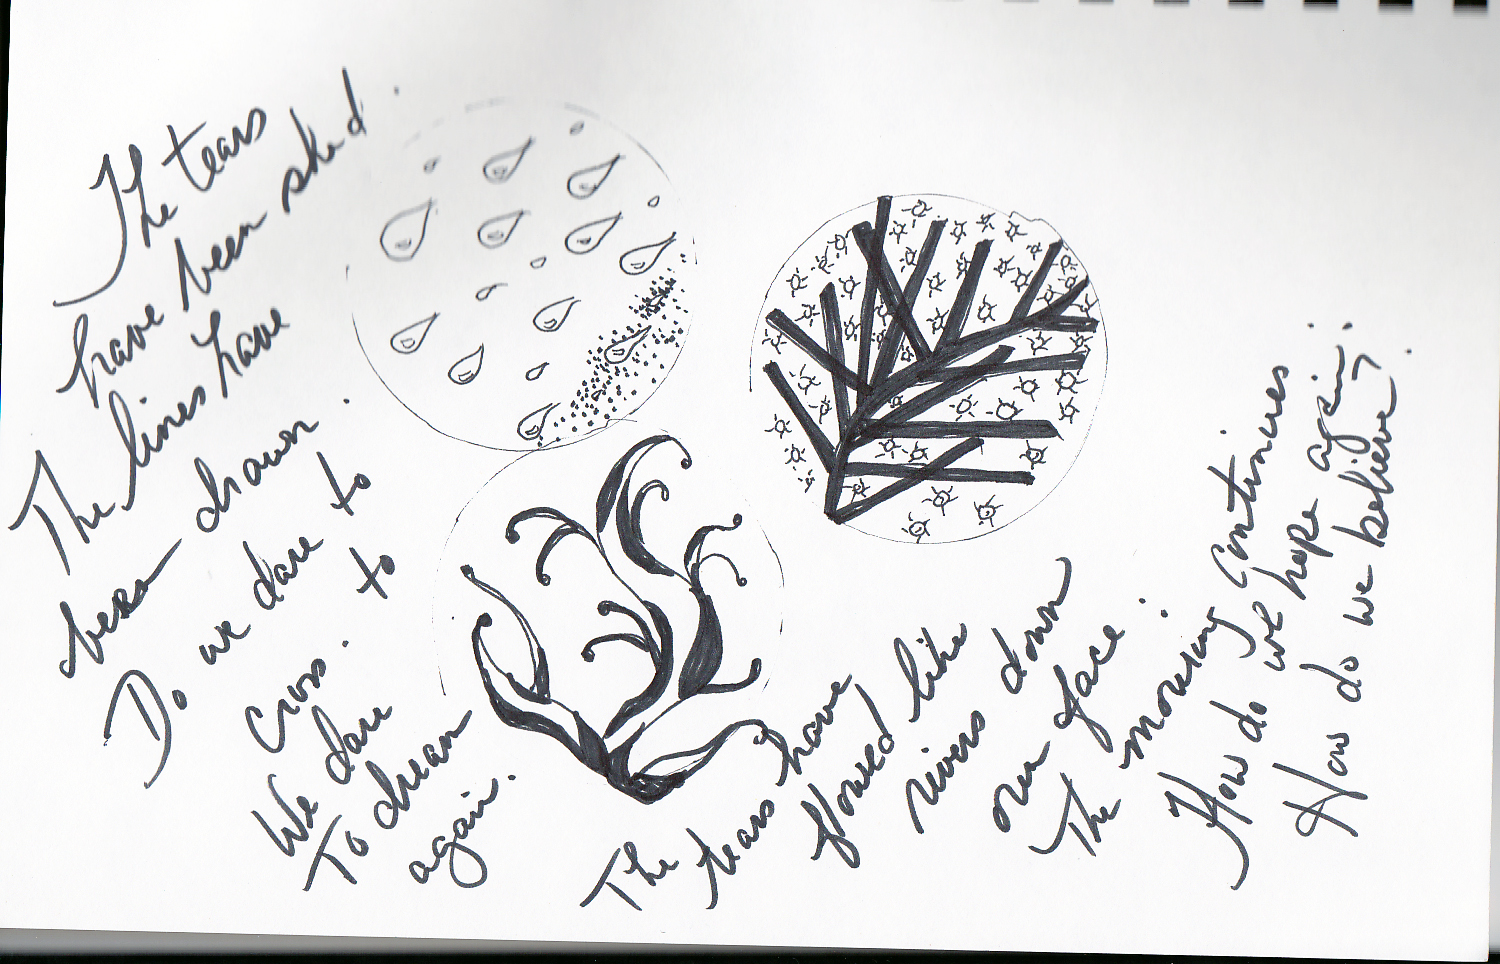 The tears
have been shed.
The lines have
been drawn.
Do we dare to
to
Cross.
We dare
To dream
again.
The tears have
flowed like
rivers down
our face.
The morning continues
How do we hope again.
How do we believe?